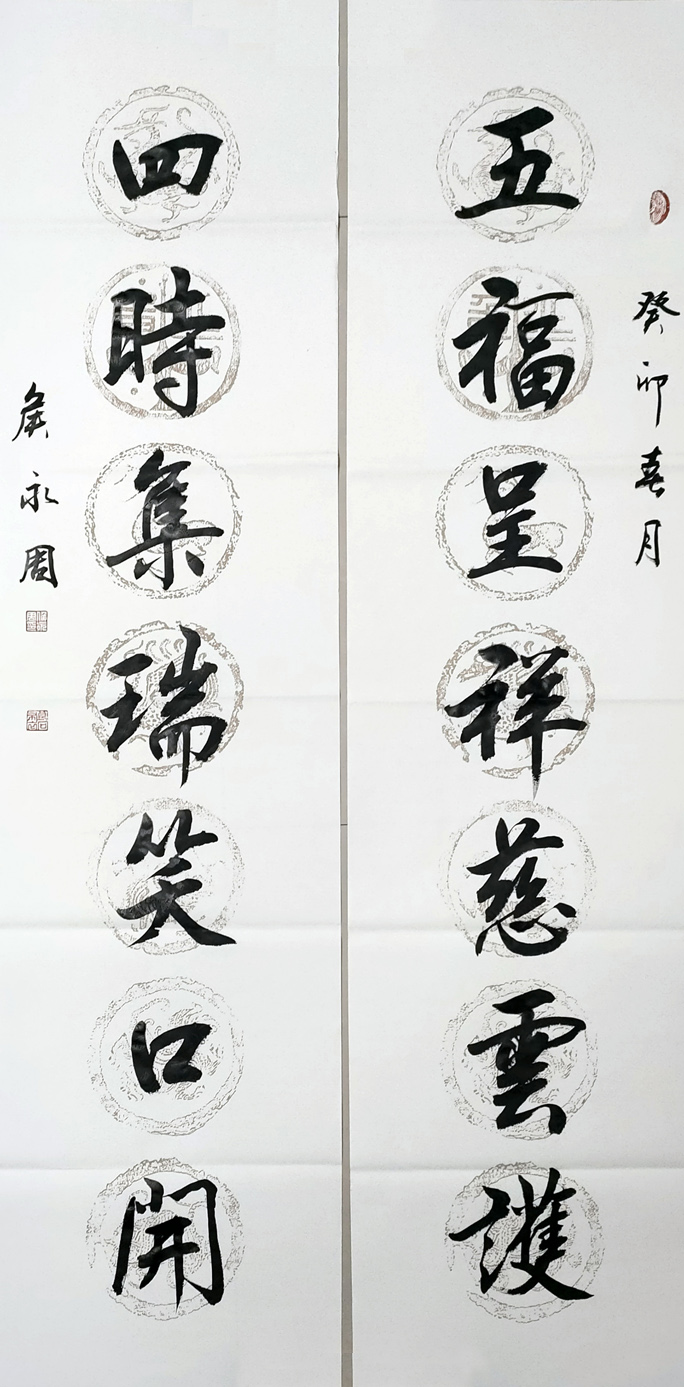 癸卯春月
五福呈祥慈雲護
四時集瑞笑口開
侯永周